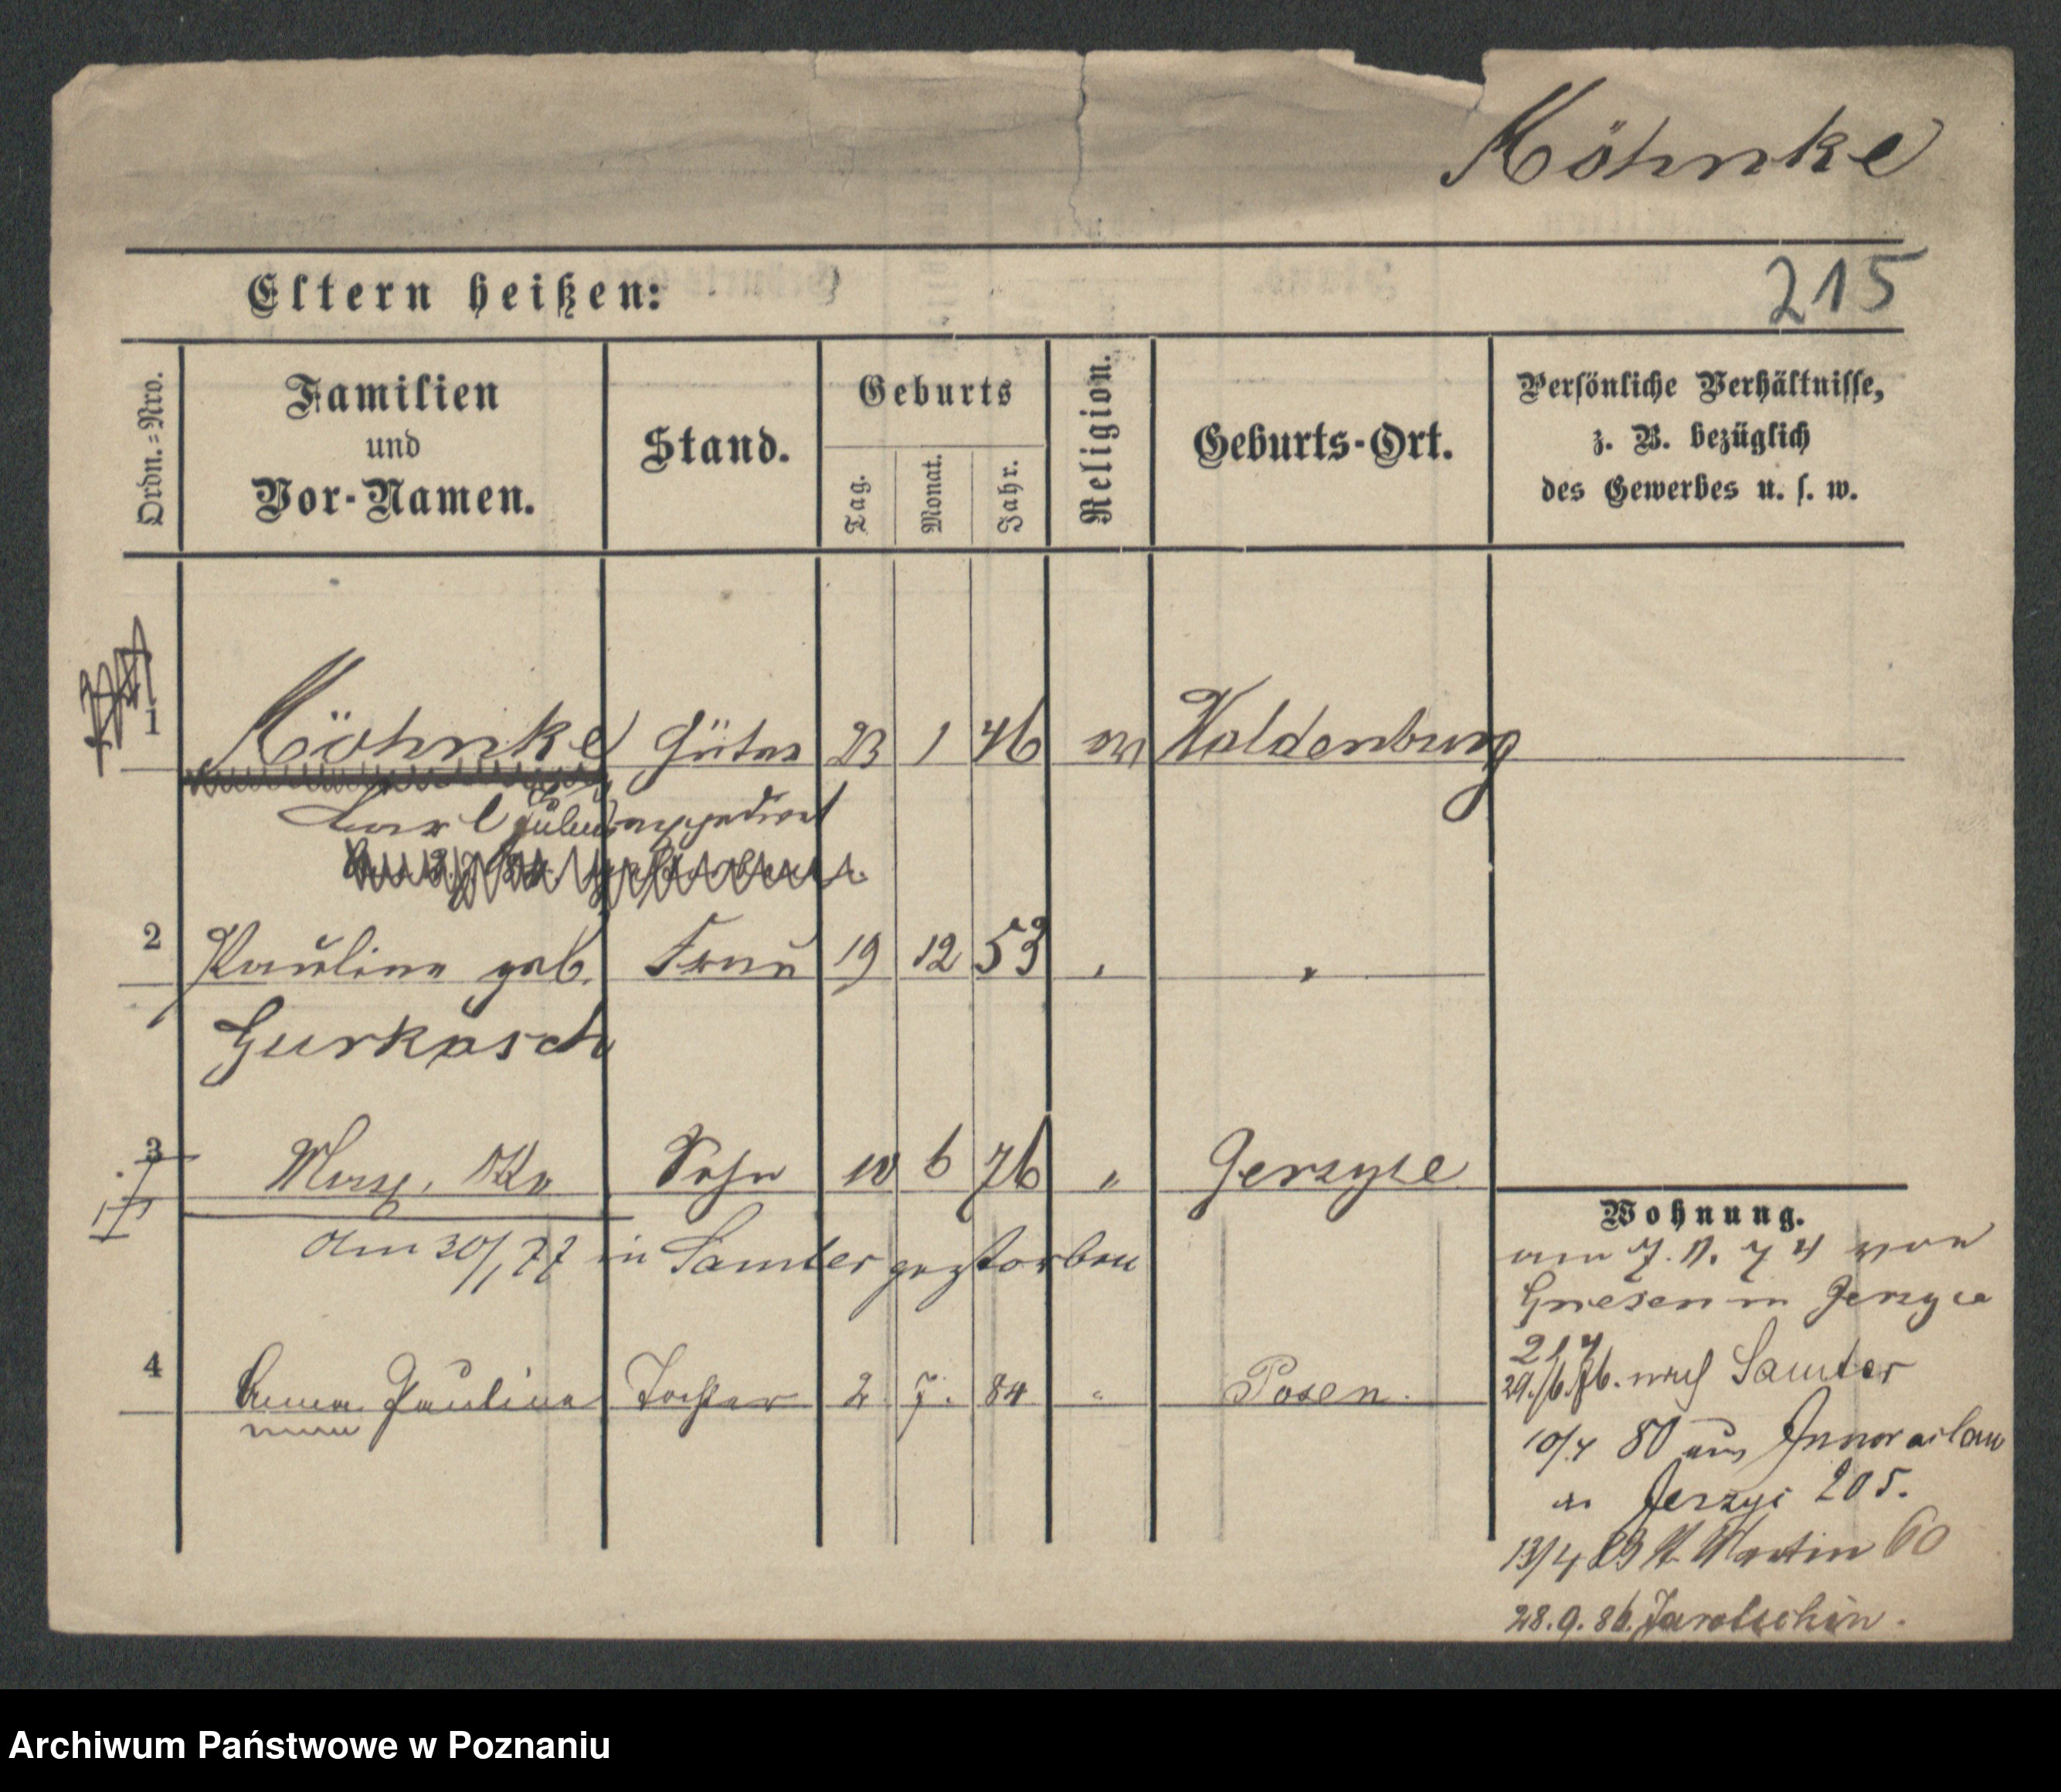 Köhnke
Eltern heißen:
215
Ordn.=Nro.
Familien
und
Vor-Namen.
Stand.
Geburts
Tag.
Monat.
Jahr.
Religion.
Geburts-Ort.
Persönliche Verhältnisse,
z. B. bezüglich
des Gewerbes u. s. w.
1 Köhnke Güter 23 1 46 ev Waldenburg
Carl Julius expedient
2 Pauline geb. Frau 19 12 53 " "
Gurkasch
3 Sohn 10 6 76 " Jerzyce
am 30/1 77 in Samter gestorben
4 Anna Pauline Tochter 2. 7. 84 " Posen.
Wohnung.
am 7. 11. 74 von
Gnesen in Jerzyce
217
29./6.76. nach Samter
10/4 80 aus Innowrazlaw
Jerzyc 205.
13/4 83 St. Martin 60
28.9.86. Jarotschin.
Archiwum Państwowe w Poznaniu